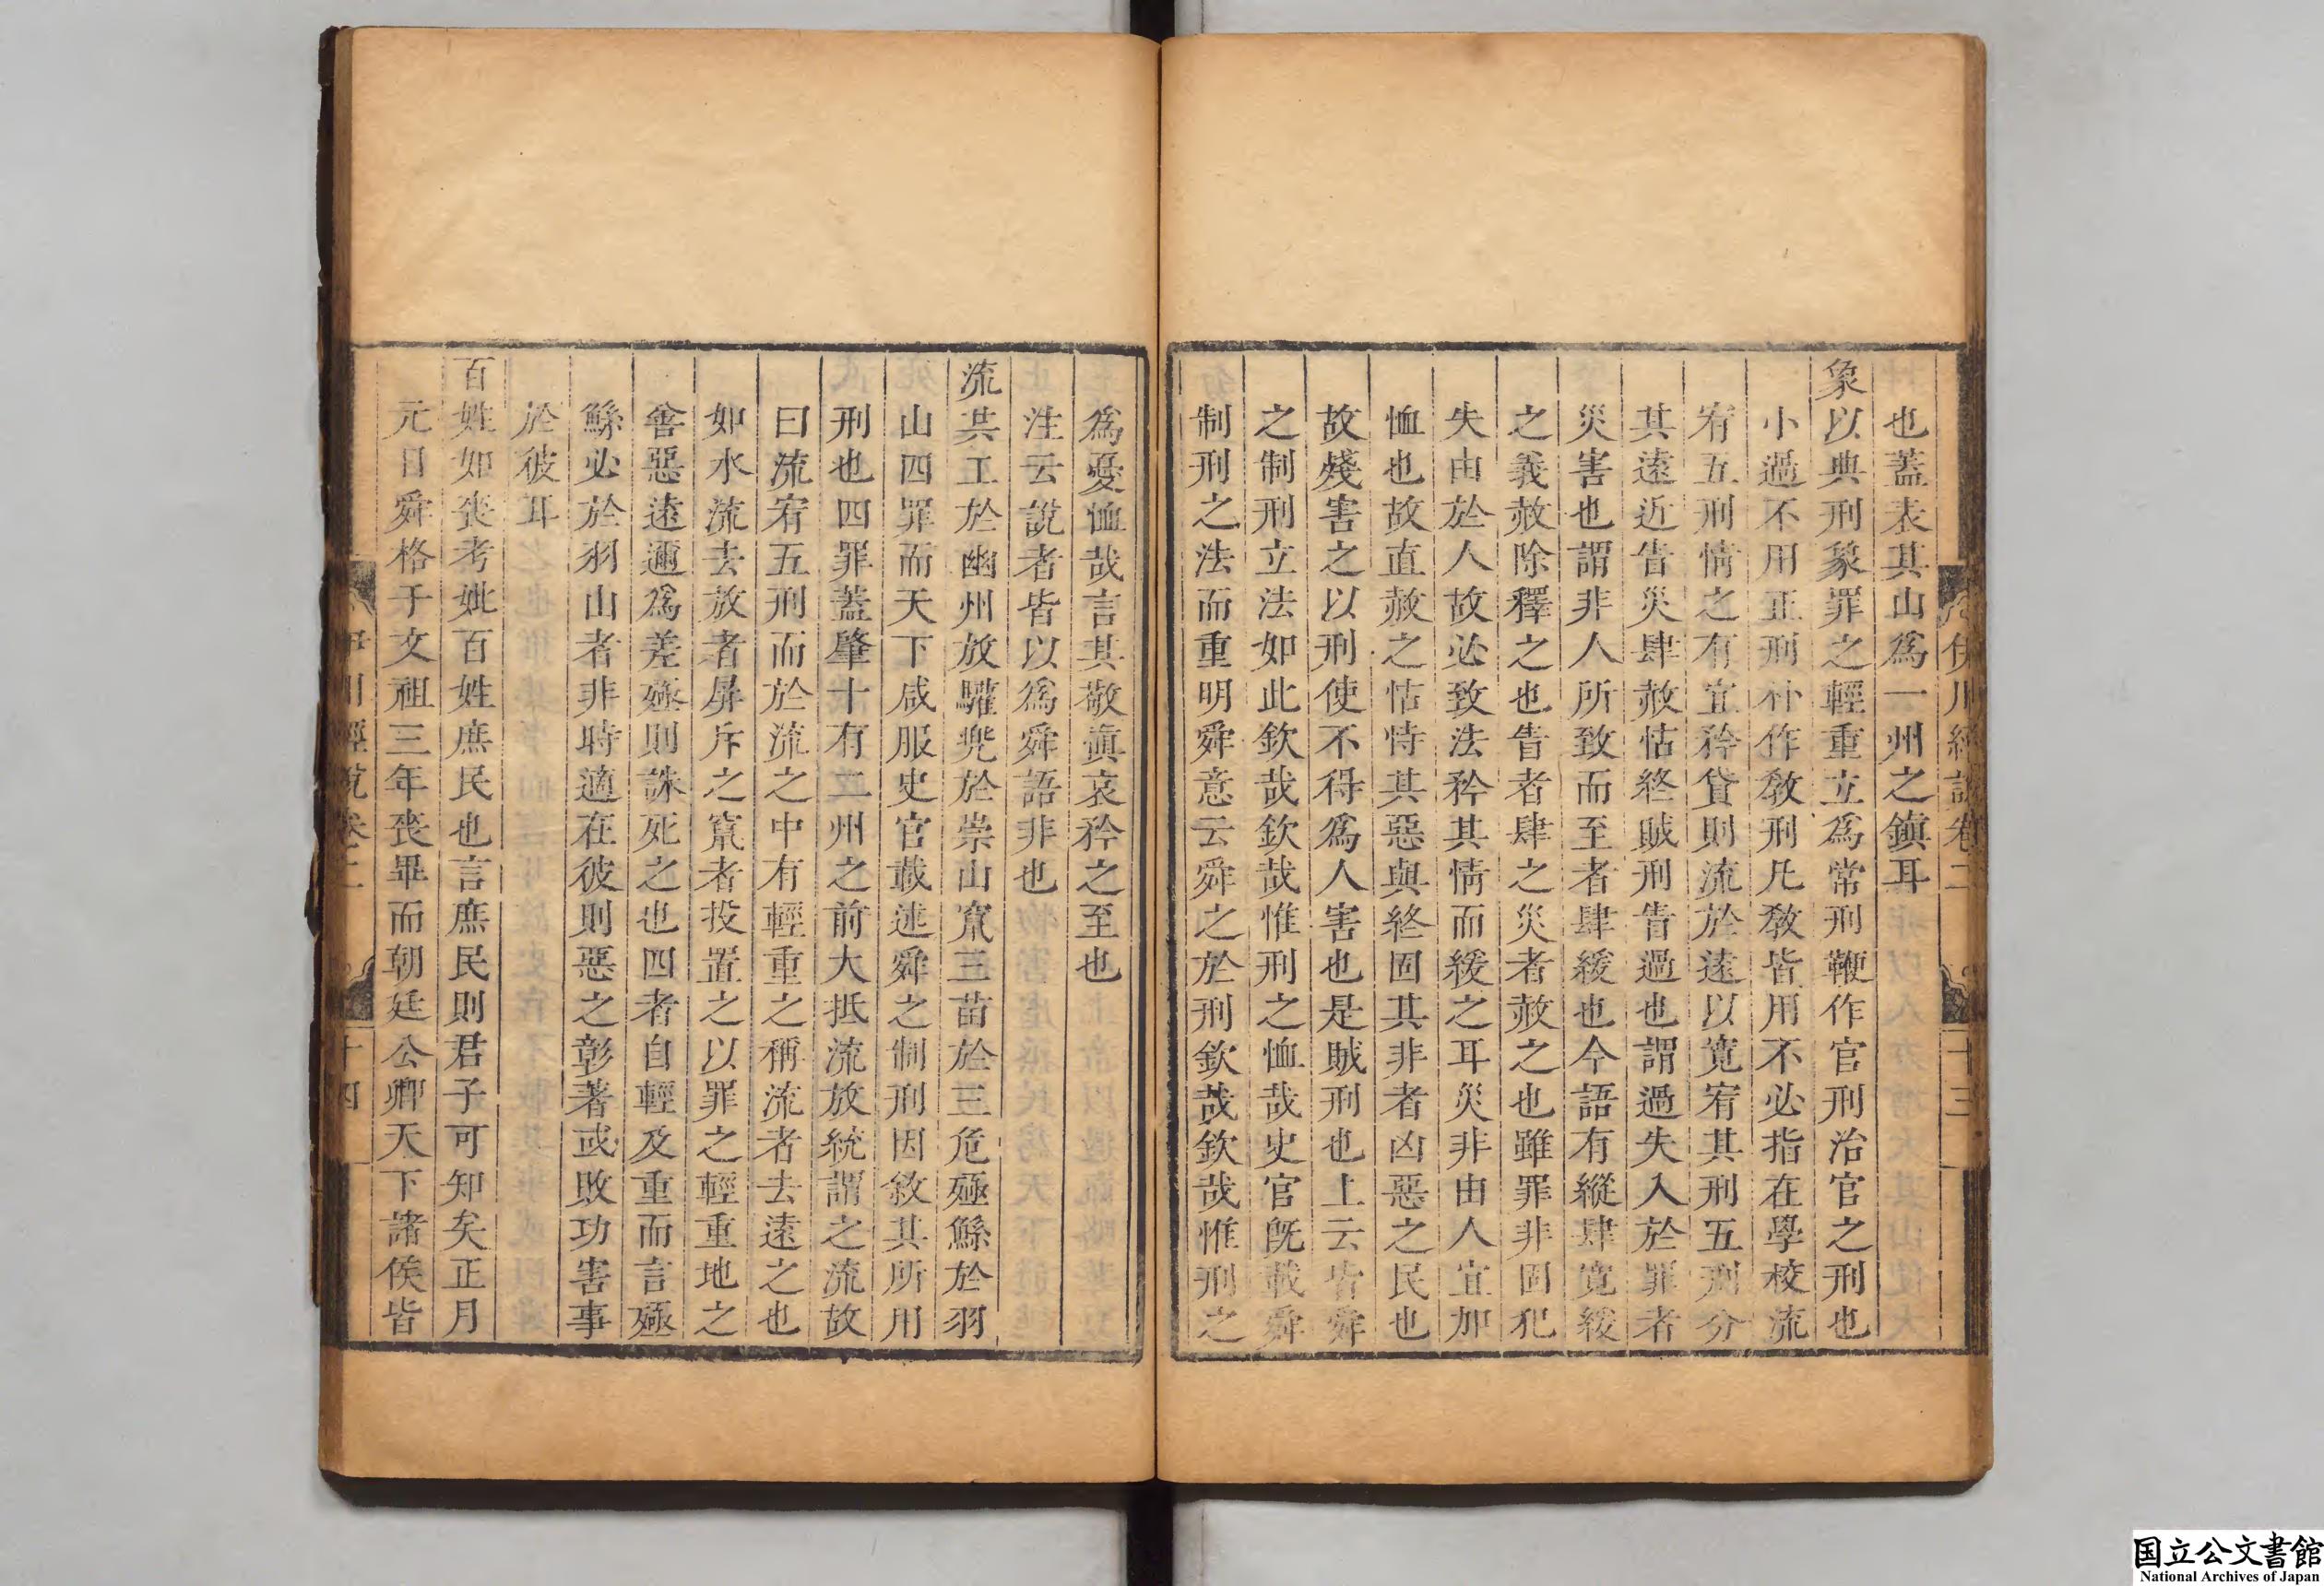 伊川經說卷二
十三
也蓋表其山爲一州之鎮耳
象以典刑象罪之輕重立爲常刑鞭作官刑治官之刑也
小過不用正刑朴作教刑凡教皆用不必指在學校流
宥五刑情之有宜矜貸則流於遠以寛宥其刑五刑分
其遠近眚災肆赦怙終賊刑眚過也謂過失入於罪者
災害也謂非人所致而至者肆緩也今語有縱肆寛緩
之義赦除釋之也眚者肆之災者赦之也雖罪非固犯
失由於人故必致法矜其情而緩之耳災非由人宜加
恤也故直赦之怙恃其惡與終固其非者凶惡之民也
故殘害之以刑使不得爲人害也是賊刑也上云皆舜
之制刑立法如此欽哉欽哉惟刑之恤哉史官旣載舜
制刑之法而重明舜意云舜之於刑欽哉欽哉惟刑之
爲憂恤哉言其敬愼哀矜之至也
注云說者皆以爲舜語非也
流共工於幽州放驩兜於崇山竄三苗於三危殛鯀於羽
山四罪而天下咸服史官載述舜之制刑因敘其所用
刑也四罪蓋肇十有二州之前大抵流放統謂之流故
曰流宥五刑而於流之中有輕重之稱流者去遠之也
如水流去放者屏斥之之竄者投置之以罪之輕重地之
善惡遠邇爲差殛則誅死之也四者自輕及重而言殛
鯀必於羽山者非時適在彼則惡之彰著或敗功害事
於彼耳
百姓如喪考妣百姓庶民也言庶民則君子可知矣正月
元日舜格于文祖三年喪畢而朝廷公卿天下諸侯皆
伊川經說卷二
十四
国立公文書館
National Archives of Japan